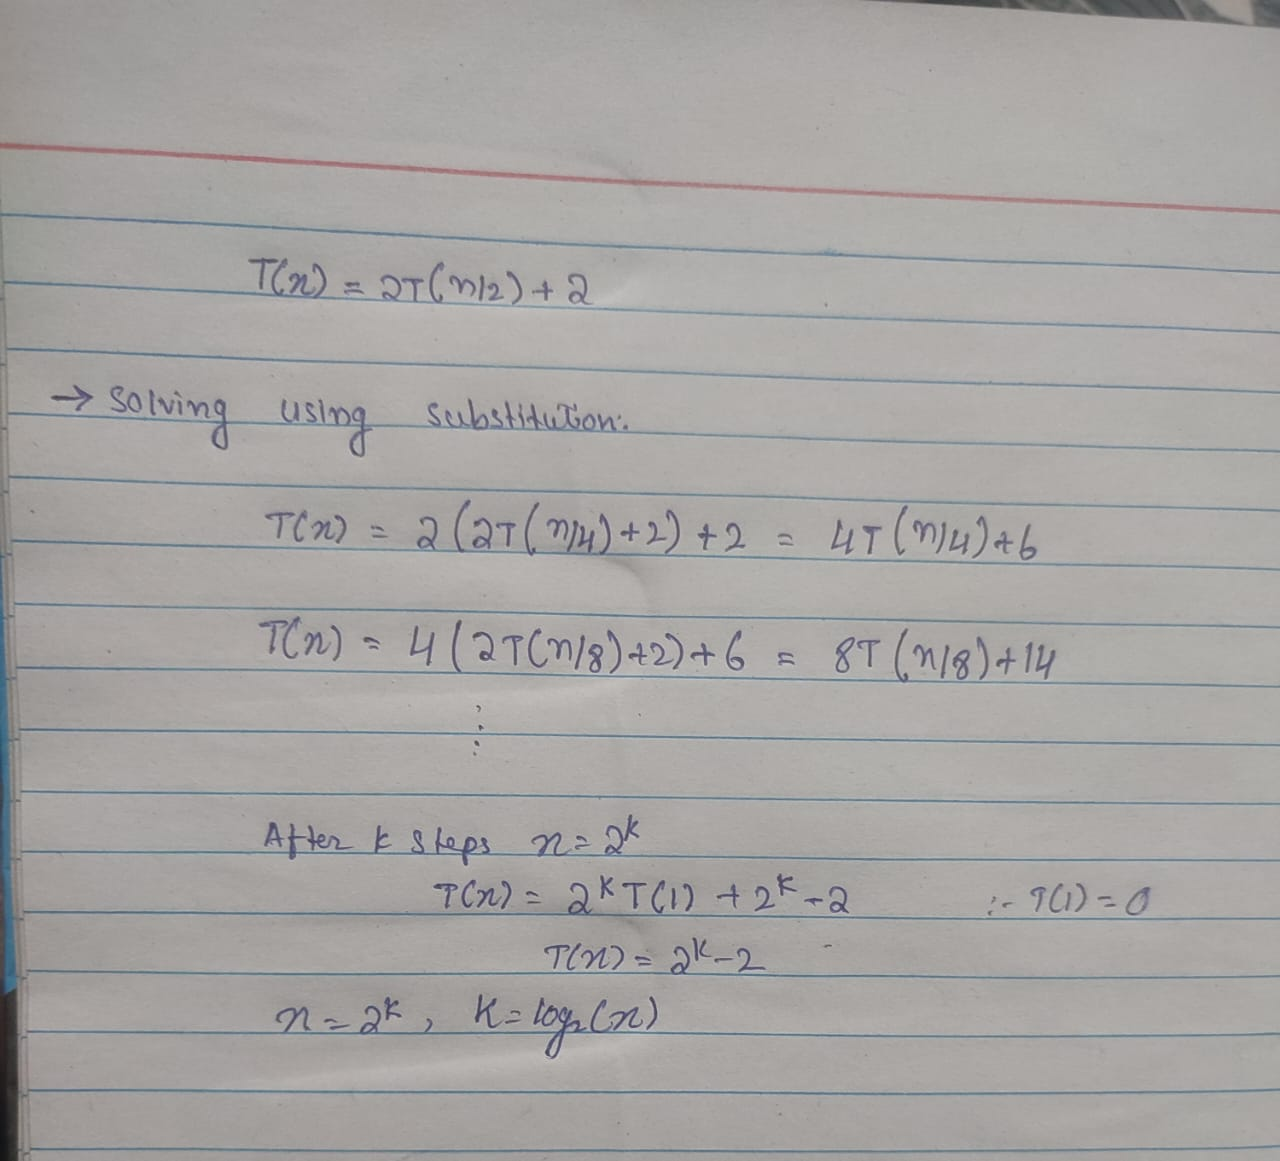 T(n) = 2T(n/2) + 2
→ Solving using substitution:
T(n) = 2(2T(n/4)+2) + 2 = 4T(n/4)+6
T(n) = 4(2T(n/8)+2)+6 = 8T(n/8)+14
⋮
After k steps n = 2^k
T(n) = 2^k T(1) + 2^k - 2 :- T(1) = 0
T(n) = 2^k - 2
n = 2^k, K = log₂(n)